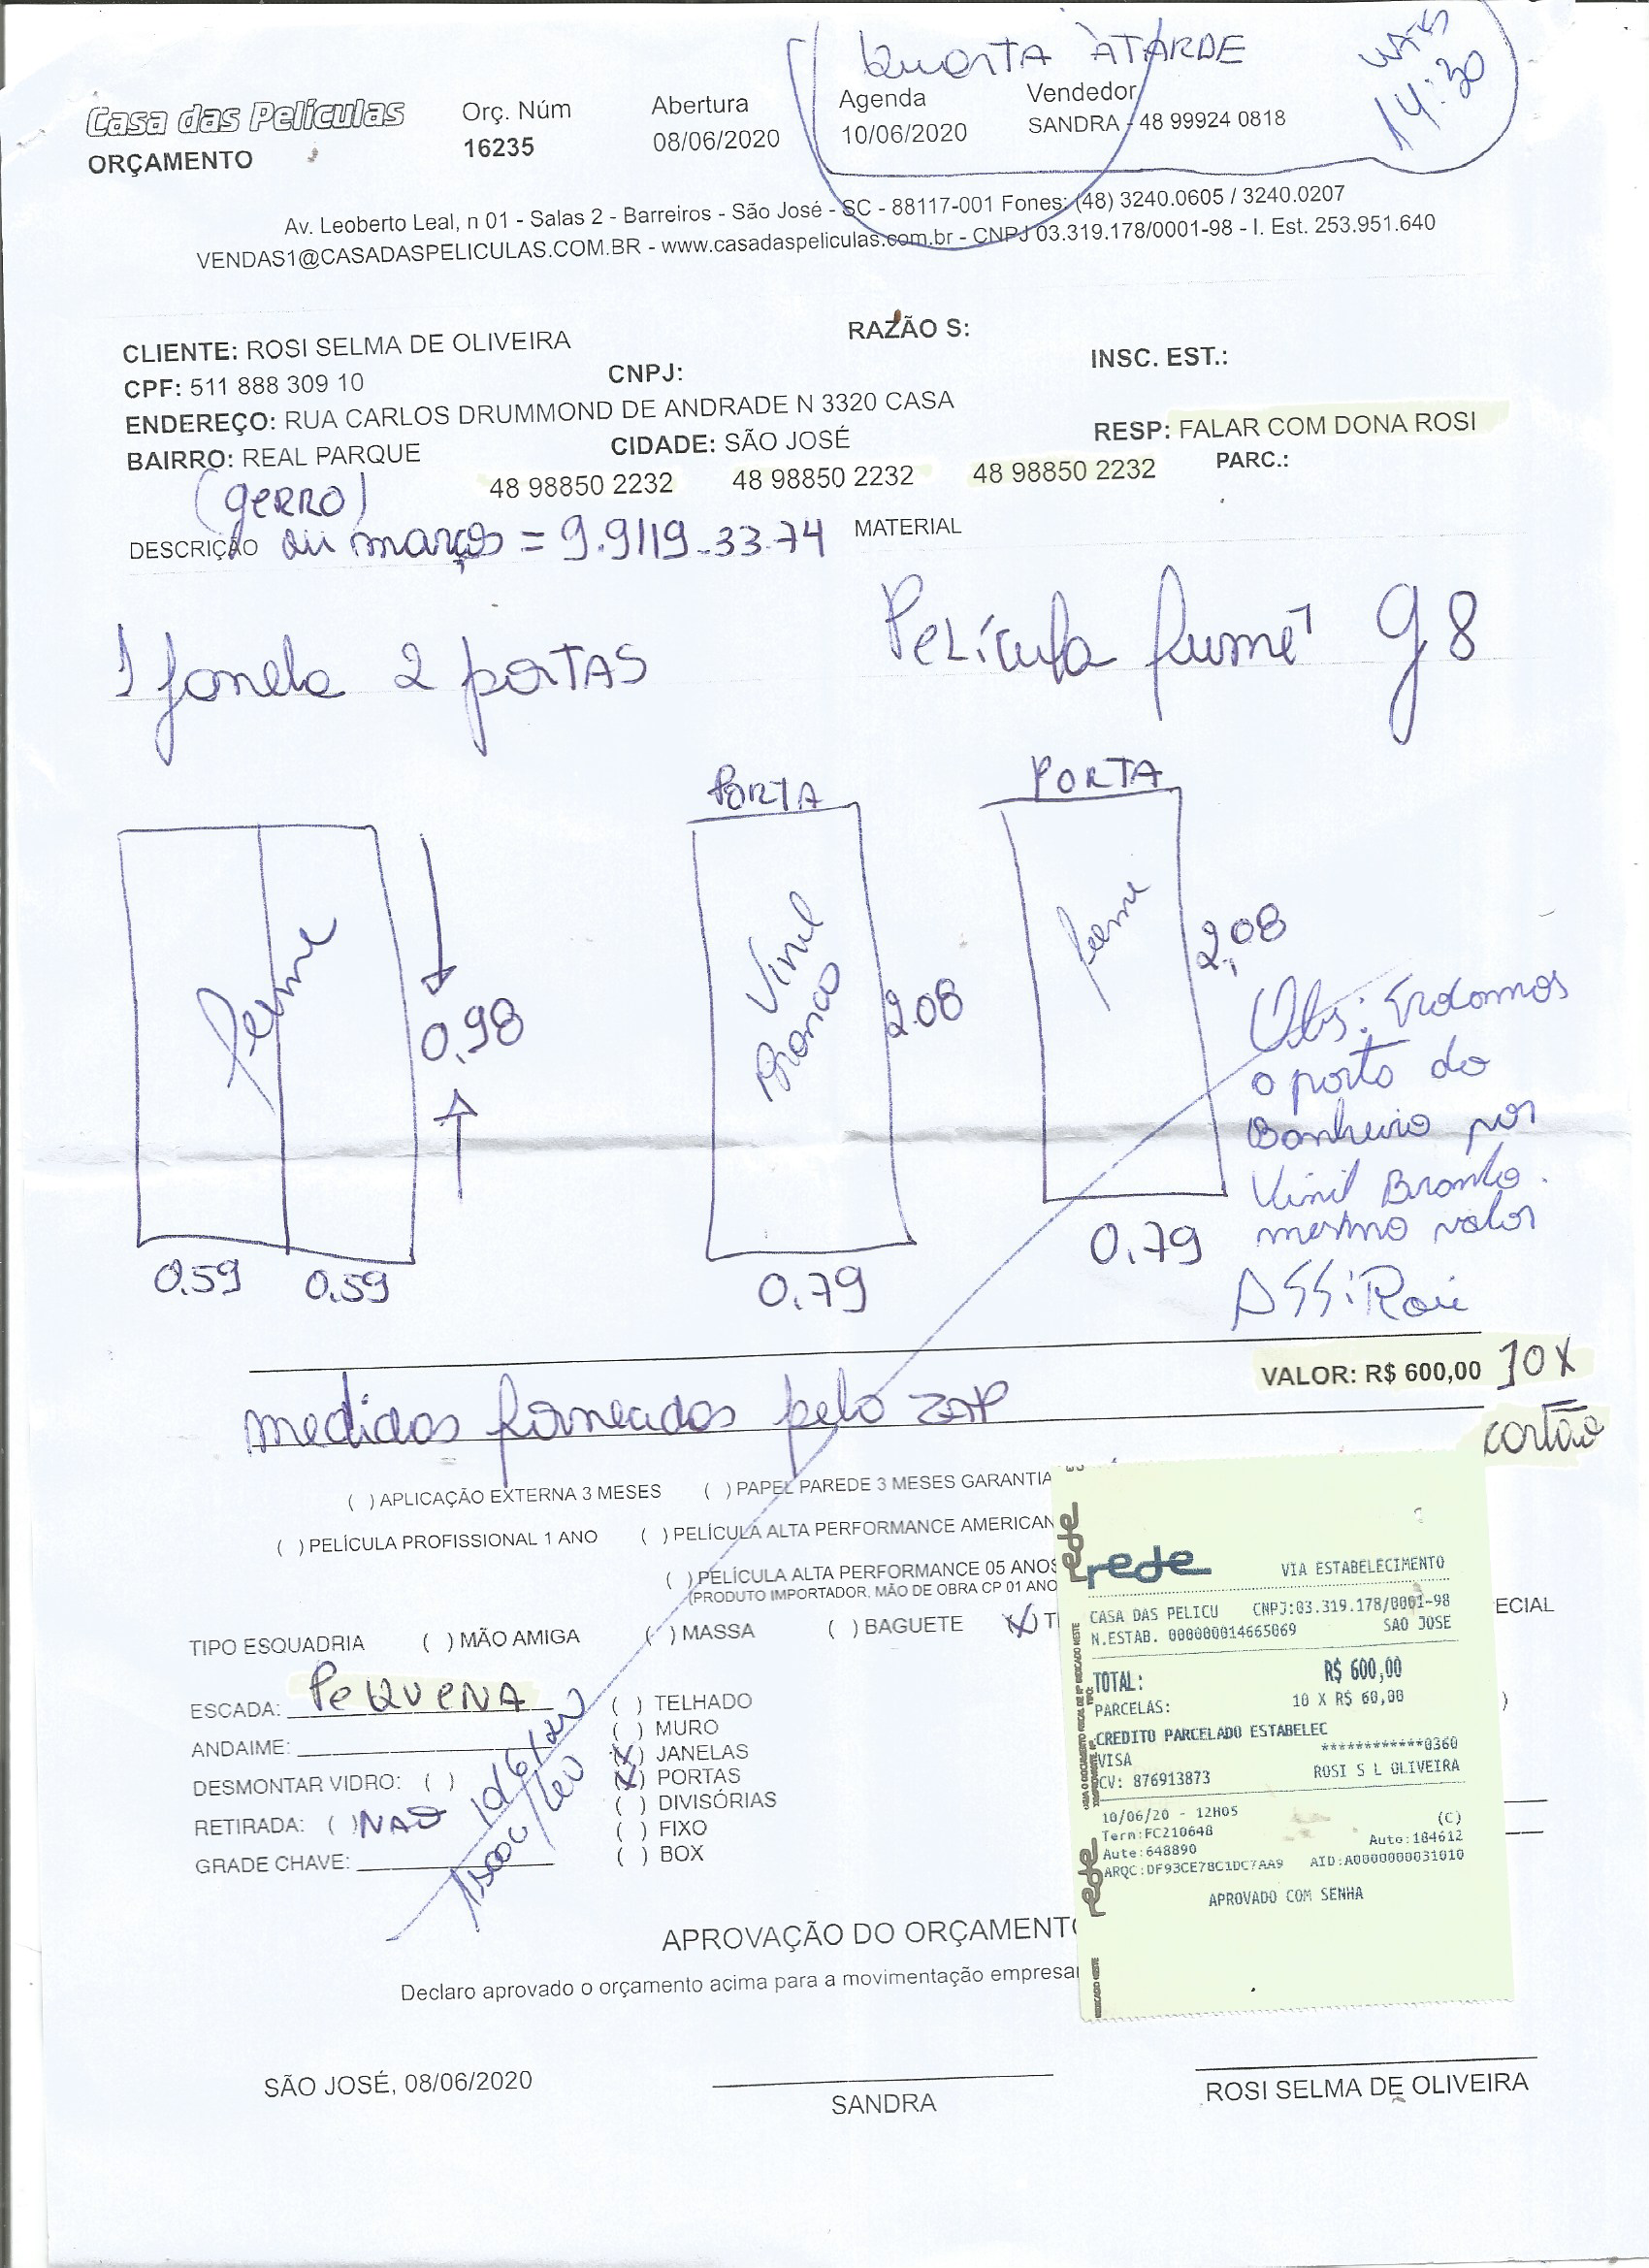 Quarta À TARDE
14:30
Casa das Películas
ORÇAMENTO
Orç. Núm
16235
Abertura
08/06/2020
Agenda
10/06/2020
Vendedor
SANDRA - 48 99924 0818
Av. Leoberto Leal, n 01 - Salas 2 - Barreiros - São José - SC - 88117-001 Fones: (48) 3240.0605 / 3240.0207
VENDAS1@CASADASPELICULAS.COM.BR - www.casadaspeliculas.com.br - CNPJ 03.319.178/0001-98 - I. Est. 253.951.640
CLIENTE: ROSI SELMA DE OLIVEIRA
RAZÃO S:
CPF: 511 888 309 10
CNPJ:
INSC. EST.:
ENDEREÇO: RUA CARLOS DRUMMOND DE ANDRADE N 3320 CASA
BAIRRO: REAL PARQUE
CIDADE: SÃO JOSÉ
RESP: FALAR COM DONA ROSI
48 98850 2232 48 98850 2232 48 98850 2232
PARC.:
(gERRO)
DESCRIÇÃO
março = 9.9119-33-74
MATERIAL
1 Janela 2 portas
Película fumê g8
PORTA
PORTA
fume
0,98
0.59 0.59
Vinil
Branco
2.08
0.79
fume
2,08
0.79
Obs: Trocamos
a porta do
Banheiro por
Vinil Branco.
mesmo valor
ASS: Rosi
VALOR: R$ 600,00 10X
cartão
medidas fornecidas pelo ZAP
( ) APLICAÇÃO EXTERNA 3 MESES ( ) PAPEL PAREDE 3 MESES GARANTIA
( ) PELÍCULA PROFISSIONAL 1 ANO ( ) PELÍCULA ALTA PERFORMANCE AMERICAN
( ) PELÍCULA ALTA PERFORMANCE 05 ANOS
(PRODUTO IMPORTADOR, MÃO DE OBRA CP 01 ANO
TIPO ESQUADRIA ( ) MÃO AMIGA ( ) MASSA ( ) BAGUETE (X) T
ECIAL
ESCADA: PEQUENA
ANDAIME:
DESMONTAR VIDRO: ( )
RETIRADA: ( ) NAO
GRADE CHAVE:
10/6/20
( ) TELHADO
( ) MURO
(X) JANELAS
(X) PORTAS
( ) DIVISÓRIAS
( ) FIXO
( ) BOX
rede
rede
rede
VIA ESTABELECIMENTO
CASA DAS PELICU CNPJ:03.319.178/0001-98
N.ESTAB. 000000014665069 SAO JOSE
TOTAL: R$ 600,00
PARCELAS: 10 X R$ 60,00
CREDITO PARCELADO ESTABELEC
VISA ************0360
CV: 876913873 ROSI S L OLIVEIRA
10/06/20 - 12H05 (C)
Term:FC210648 Auto:184612
Aute:648890
ARQC:DF93CE78C1DC7AA9 AID:A0000000031010
APROVADO COM SENHA
APROVAÇÃO DO ORÇAMENTO
Declaro aprovado o orçamento acima para a movimentação empresa
SÃO JOSÉ, 08/06/2020
SANDRA
ROSI SELMA DE OLIVEIRA